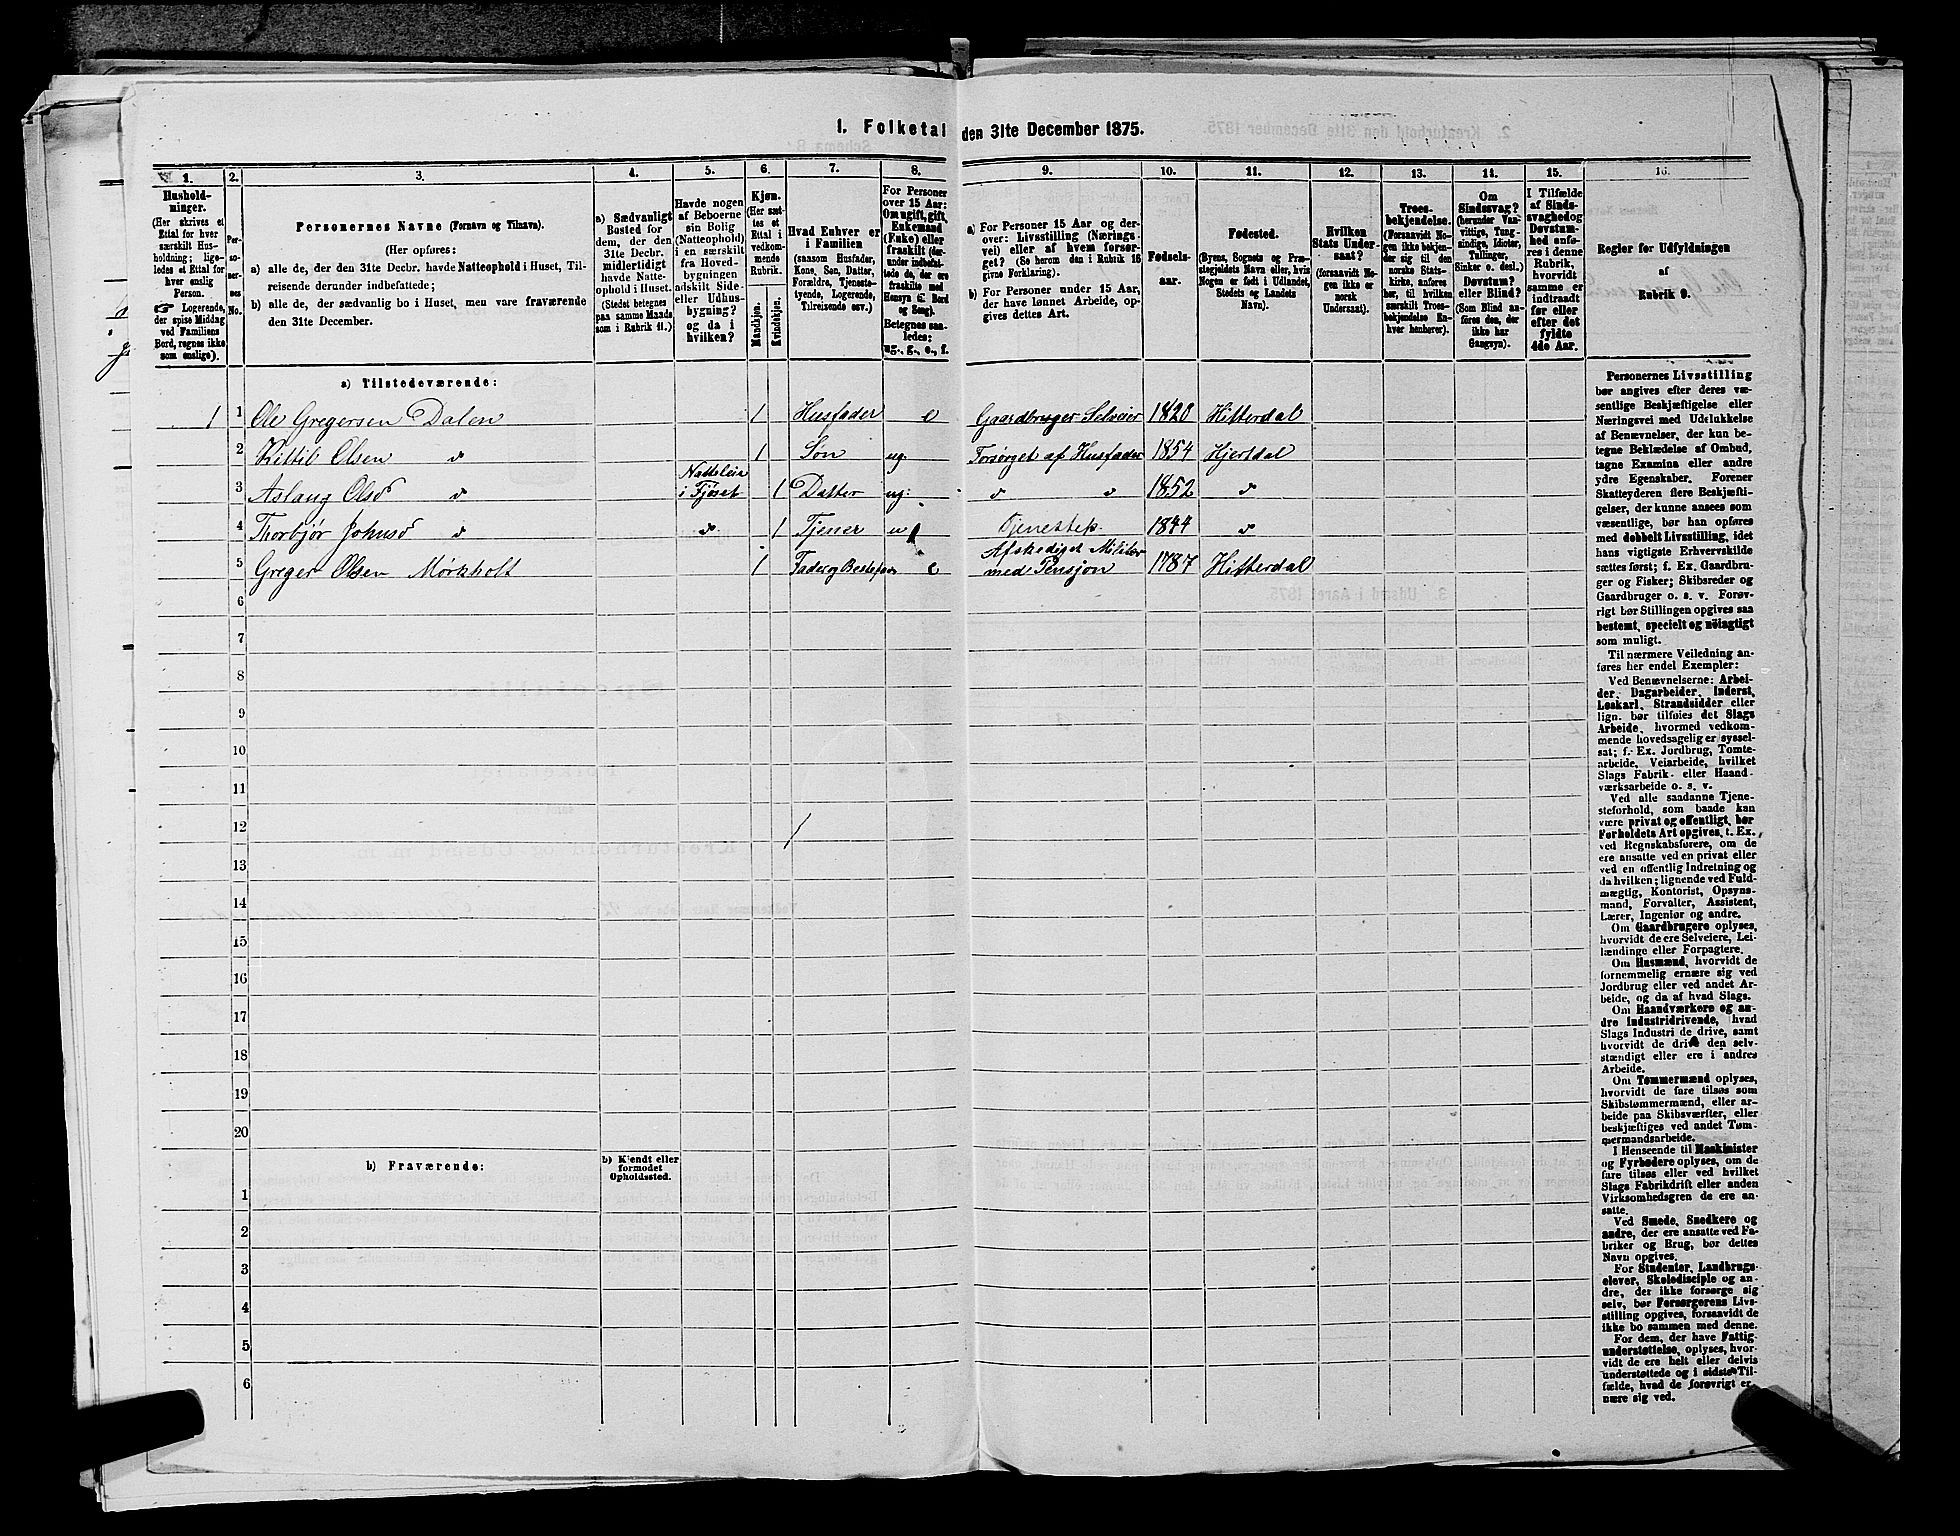 1. Folketal den 31te December 1875.
1. 2. 3. 4. 5. 6. 7. 8. 9. 10. 11. 12. 13. 14. 15. 16.
Hushold-
ninger.
(Her skrives et
Ettal for hver
særskilt Hus-
holdning; lige-
ledes et Ettal for
hver enslig
Person.
Logerende,
der spise Middag
ved Familiens
Bord, regnes ikke
som enslige).
Per-
so-
ner-
nes
No.
Personernes Navne (Fornavn og Tilnavn).
(Her opføres:
a) alle de, der den 31te Decbr. havde Natteophold i Huset, Til-
reisende derunder indbefattede;
b) alle de, der sædvanlig bo i Huset, men vare fraværende
den 31te December.
a) Sædvanligt
Bosted for
dem, der den
31te Decbr.
midlertidigt
havde Natte-
ophold i Huset.
(Stedet betegnes
paa samme Maade
som i Rubrik 11.)
Havde nogen
af Beboerne
sin Bolig
(Natteophold)
i en særskilt
fra Hoved-
bygningen
adskilt Side-
eller Udhus-
bygning?
og da i
hvilken?
Kjøn.
(Her sæt-
tes et
Ettal i
vedkom-
mende
Rubrik.
Mandkjøn.
Kvindkjøn.
Hvad Enhver er
i Familien
(saasom Husfader,
Kone, Søn, Datter,
Forældre, Tjeneste-
tyende, Logerende,
Tilreisende osv.)
For Personer
over 15 Aar:
Om ugift, gift,
Enkemand
(Enke) eller
fraskilt (der-
under indbefat-
tede de, der ere
fraskilte med
Hensyn til Bord
og Seng).
Betegnes saa-
ledes:
ug., g., e., f.
a) For Personer 15 Aar og der-
over: Livsstilling (Nærings-
vei) eller af hvem forsør-
get? (Se herom den i Rubrik 16
givne Forklaring).
b) For Personer under 15 Aar,
der have lønnet Arbeide, op-
gives dettes Art.
Fødsels-
aar.
Fødested.
(Byens, Sognets og Præ-
stegjeldets Navn eller, hvis
Nogen er født i Udlandet,
Stedets og Landets
Navn).
Hvilken
Stats Under-
saat?
(forsaavidt No-
gen ikke er
norsk
Undersaat).
Troes-
bekjendelse.
(Forsaavidt No-
gen ikke bekjen-
der sig til den
norske Stats-
kirke, anføres
her, til hvilken
særskilt Troes-
bekjendelse En-
hver henhører).
Om
Sindssvag?
(herunder Van-
vittige, Tung-
sindige, Idioter,
Tullinger,
Sinker o. desl.)
Døvstum?
eller Blind?
(Som Blind an-
føres den, der
ikke har
Gangsyn).
I Tilfælde
af Sinds-
svaghed og
Døvstum-
hed anfø-
res i denne
Rubrik,
hvorvidt
samme er
indtraadt
før eller
efter det
fyldte
4de Aar.
Regler for Udfyldningen
af
Rubrik 9.
a) Tilstedeværende:
1 1 Ole Gregersen Dalen 1 Husfader e Gaardbruger Selveier 1820 Hitterdal
2 Kittil Olsen do 1 Søn ug. Forsørget af Husfader 1854 Hjertdal
3 Aslaug Olsd do Natteleie i Fjøset 1 Datter ug. do do 1852 do
4 Thorbjør Johnsd do do 1 Tjener u Tjenestep. 1844 do
5 Greger Olsen Mørkholt 1 Fader og Bestefar e Afskediget Militær med Pensjon 1787 Hitterdal
6
7
8
9
10
11
12
13
14
15
16
17
18
19
20
b) Fraværende:
b) Kjendt eller
formodet
Opholdssted.
1
2
3
4
5
6
Personernes Livsstilling
bør angives efter deres væ-
sentlige Beskjæftigelse eller
Næringsvei med Udelukkelse
af Benævnelser, der kun be-
tegne Beklædelse af Ombud,
tagne Examina eller andre
ydre Egenskaber. Forener
Skatteyderen flere Beskjæfti-
gelser, der kunne ansees som
væsentlige, bør han opføres
med dobbelt Livsstilling, idet
hans vigtigste Erhvervskilde
sættes først; f. Ex. Gaardbru-
ger og Fisker; Skibsreder og
Gaardbruger o. s. v. Forøv-
rigt bør Stillingen opgives saa
bestemt, specielt og nøiagtigt
som muligt.
Til nærmere Veiledning an-
føres her endel Exempler:
Ved Benævnelserne: Arbei-
der, Dagarbeider, Inderst,
Løskarl, Strandsidder eller
lign. bør tilføies det Slags
Arbeide, hvormed vedkom-
mende hovedsagelig er syssel-
sat; f. Ex. Jordbrug, Tomte-
arbeide, Veiarbeide, hvilket
Slags Fabrik- eller Haand-
værksarbeide o. s. v.
Ved alle saadanne Tjene-
steforhold, som baade kan
være privat og offentligt, bør
Forholdets Art opgives, t. Ex.
ved Regnskabsførere, om de
ere ansatte ved en privat eller
ved en offentlig Indretning og
da hvilken; lignende ved Fuld-
mægtig, Kontorist, Opsyns-
mand, Forvalter, Assistent,
Lærer, Ingeniør og andre.
Om Gaardbrugere oplyses,
hvorvidt de ere Selveiere, Lei-
lændinge eller Forpagtere.
Om Husmænd, hvorvidt de
fornemmelig ernære sig ved
Jordbrug eller ved andet Ar-
beide, og da af hvad Slags.
Om Haandværkere og an-
dre Industridrivende, hvad
Slags Industri de drive, samt
hvorvidt de drive den selv-
stændigt eller ere i andres
Arbeide.
Om Tømmermænd oplyses,
hvorvidt de fare tilsøs som
Skibstømmermænd, eller ar-
beide paa Skibsværfter, eller
beskjæftiges ved andet Tøm-
mermandsarbeide.
I Henseende til Maskinister
og Fyrbødere oplyses, om de
fare tilsøs eller ved hvilket
Slags Fabrikdrift eller anden
Virksomhedsgren de ere an-
satte.
Ved Smede, Snedkere og
andre, der ere ansatte ved Fa-
briker og Brug, bør dettes
Navn opgives.
For Studenter, Landbrugs-
elever, Skoledisciple og an-
dre, der ikke forsørge sig
selv, bør Forsørgerens Livs-
stilling opgives, forsaavidt de
ikke bo sammen med denne.
For dem, der have Fattig-
understøttelse, oplyses, hvor-
vidt de ere helt eller delvis
understøttede og i sidste Til-
fælde, hvad de forøvrigt er-
nære sig ved.